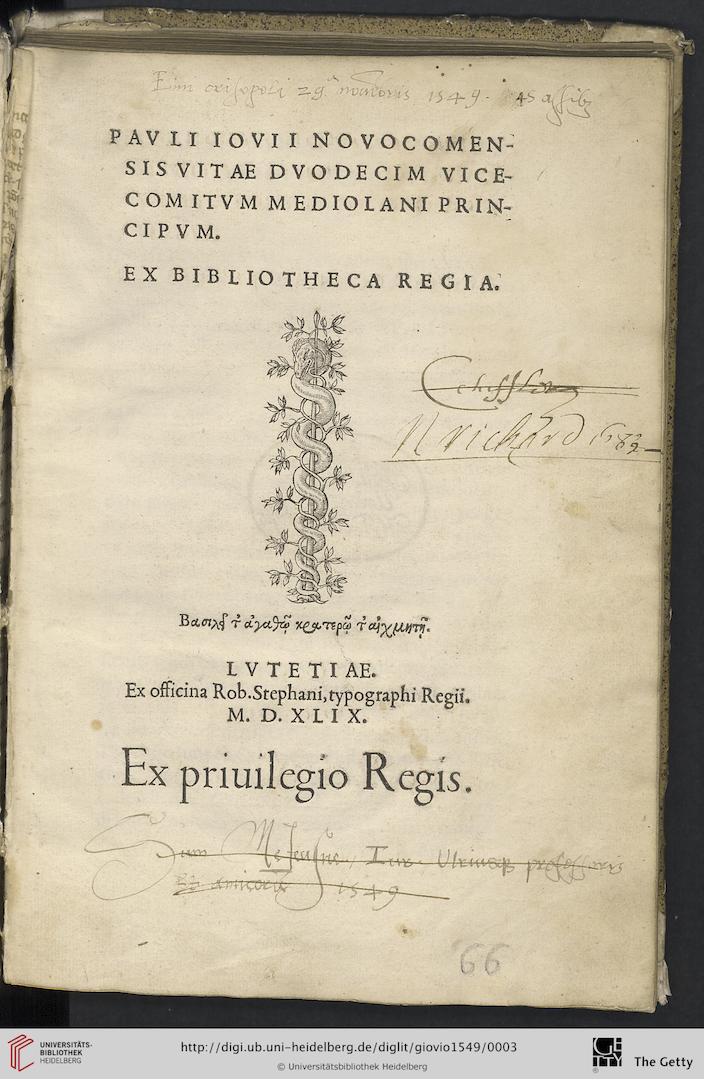 1549.
PAVLI IOVII NOVOCOMEN-
SIS VITAE DVODECIM VICE-
COMITVM MEDIOLANI PRIN-
CIPVM.
EX BIBLIOTHECA REGIA.
N richard 1682
Βασιλεῖ τ' ἀγαθῷ κρατερῷ τ' αἰχμητῇ.
LVTETIAE.
Ex officina Rob. Stephani, typographi Regii.
M. D. XLIX.
Ex priuilegio Regis.
Sum Iur. Vtriusq professoris
Et amicorum 1549
66
UNIVERSITÄTS-
BIBLIOTHEK
HEIDELBERG
http://digi.ub.uni-heidelberg.de/diglit/giovio1549/0003
© Universitätsbibliothek Heidelberg
The Getty